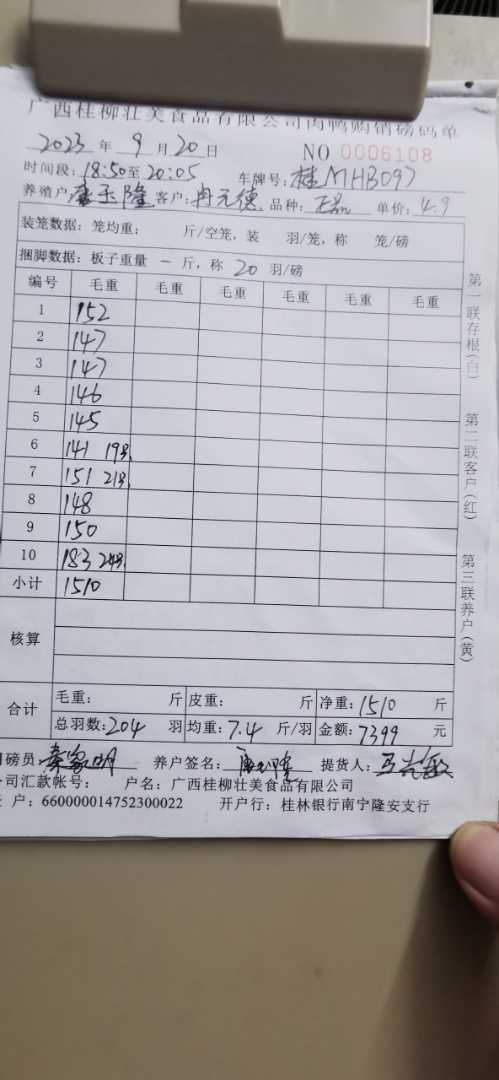 广西桂柳壮美食品有限公司肉鸭购销磅码单
2023 年 9 月 20 日 NO 0006108
时间段: 18:50至 20:05 车牌号: 桂MHB097
养殖户 唐玉隆 客户: 冉元德 品种: 单价: 4.9
装笼数据: 笼均重: 斤/空笼, 装 羽/笼, 称 笼/磅
捆脚数据: 板子重量 一 斤, 称 20 羽/磅
编号 毛重 毛重 毛重 毛重 毛重 毛重
1 152
2 147
3 147
4 146
5 145
6 141 19羽
7 151 21羽
8 148
9 150
10 183 24羽
小计 1510
核算
合计 毛重: 斤 皮重: 斤 净重: 1510 斤
总羽数: 204 羽 均重: 7.4 斤/羽 金额: 7399 元
司磅员 养户签名: 唐玉隆 提货人:
司汇款帐号: 户名: 广西桂柳壮美食品有限公司
户: 660000014752300022 开户行: 桂林银行南宁隆安支行
第一联存根(白)
第二联客户(红)
第三联养户(黄)